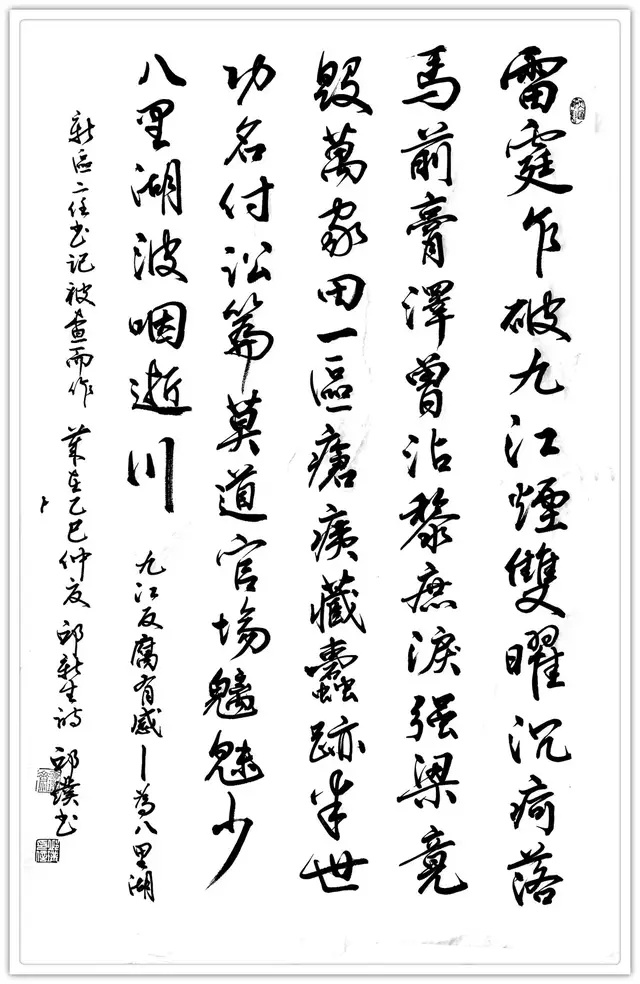 雷霆乍破九江煙雙曜沉疴落
馬前膏澤曾沾黎庶淚强梁竟
毀萬家田一區瘡痍藏蠹跡半世
功名付訟篇莫道官場魑魅少
八里湖波咽逝川
九江反腐有感—為八里湖
新區二任书记被查而作 岁在乙巳仲夏 邱新生诗 邱璞书